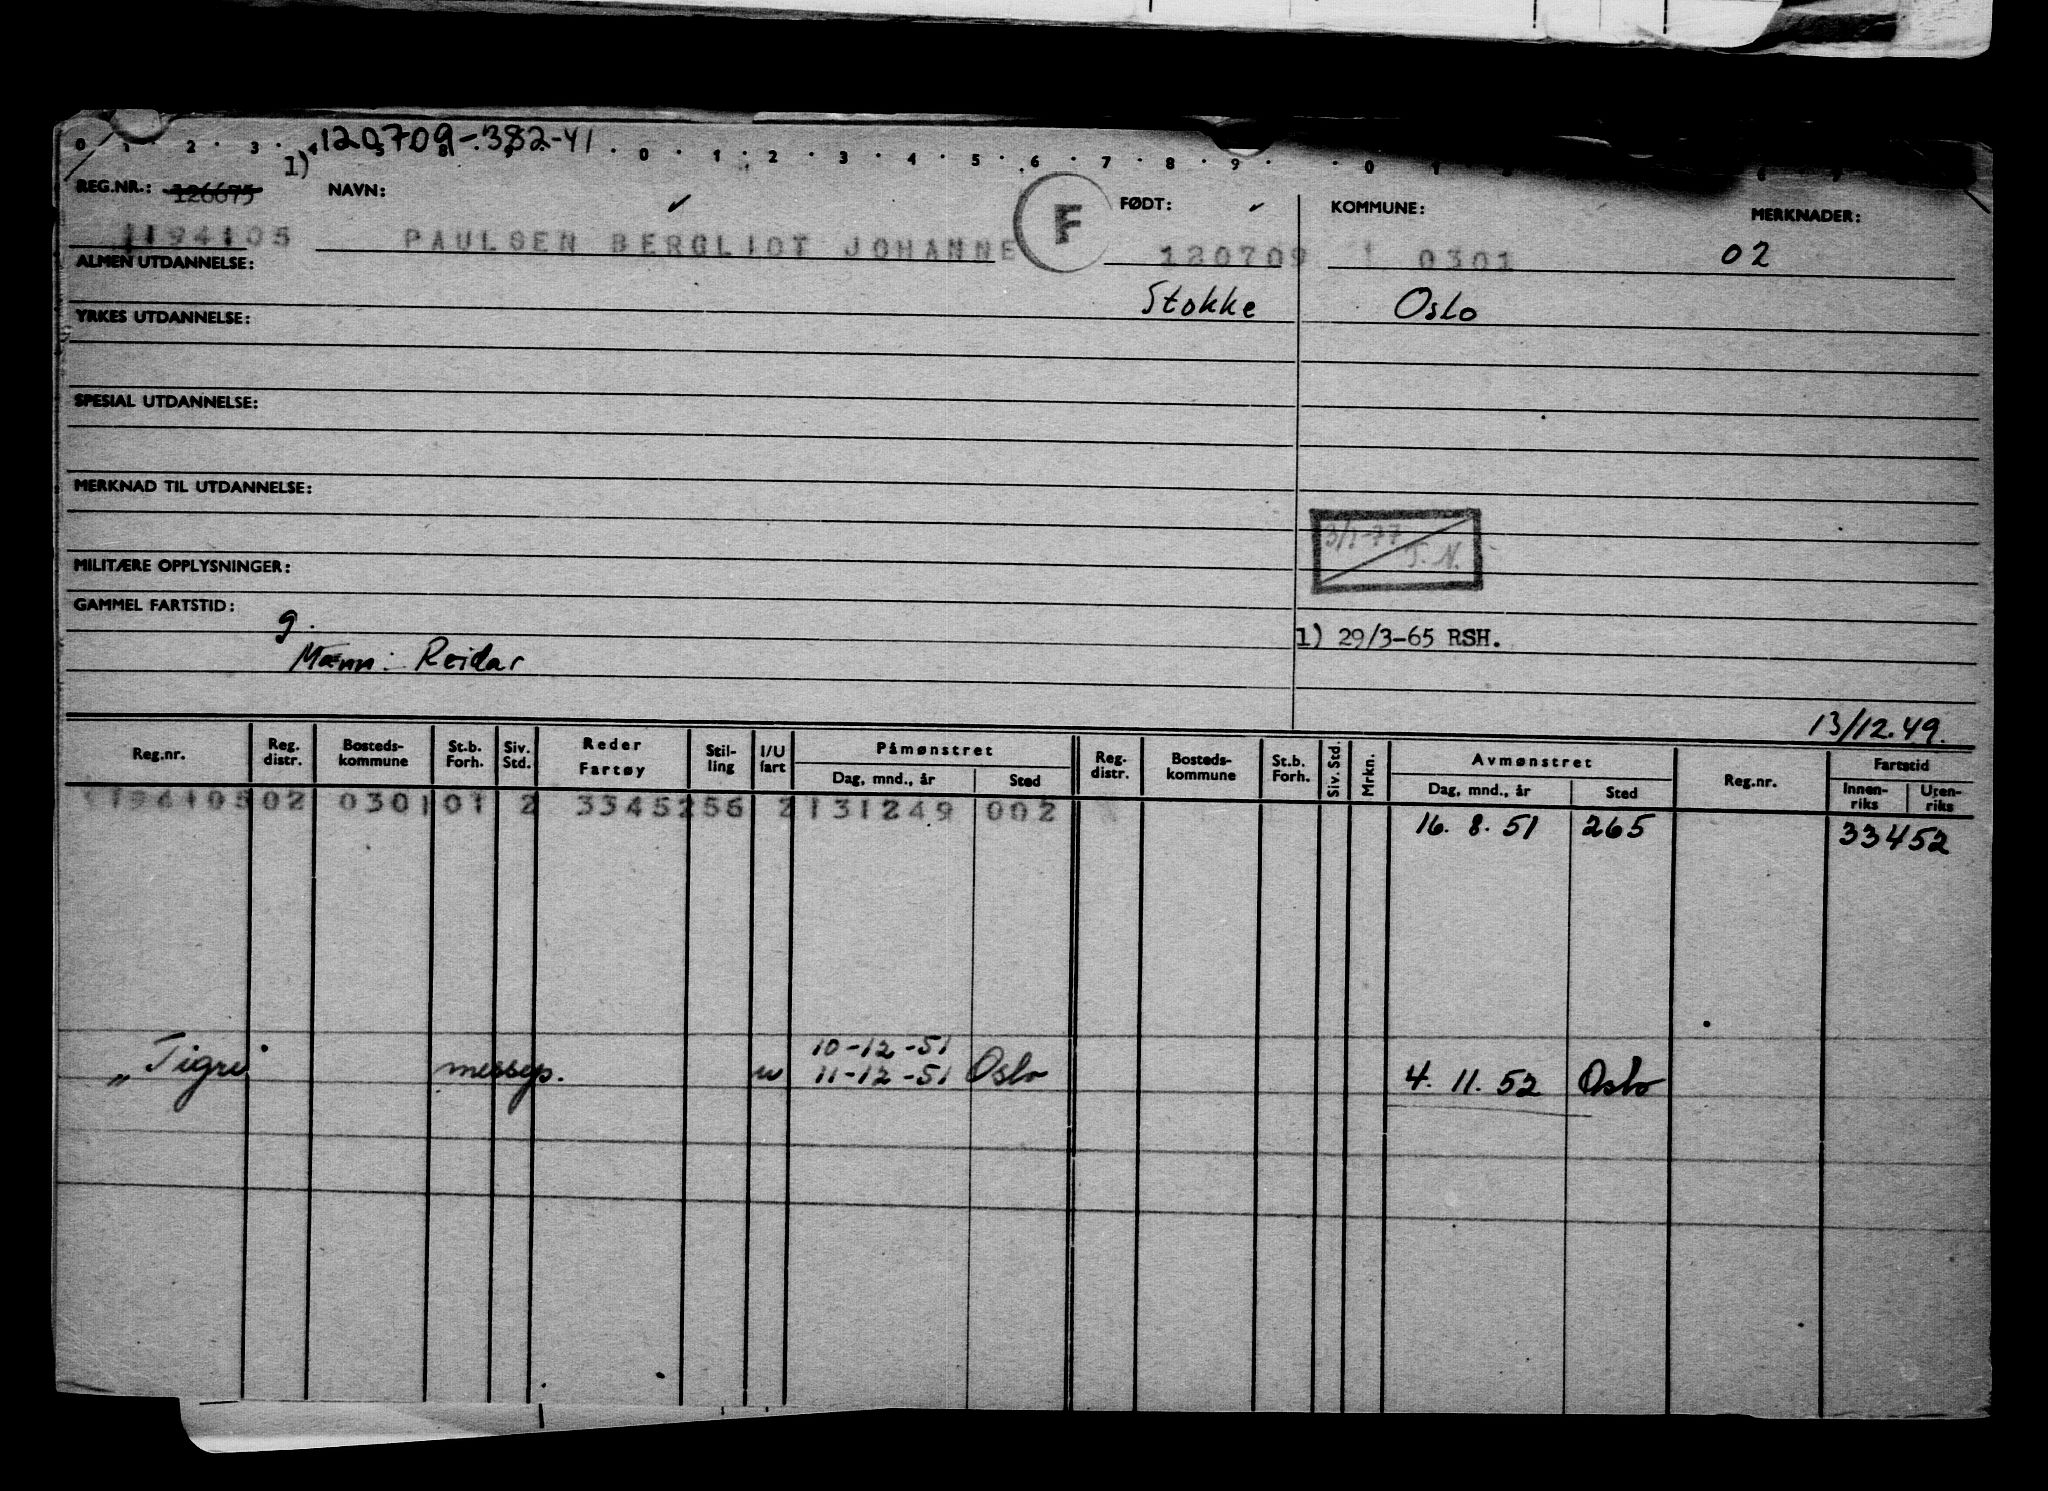 120709-382-41
0 1 2 3 0 1 2 3 4 5 6 7 8 9 0 1
1)
REG.NR.: 126675 NAVN: FØDT: KOMMUNE: MERKNADER:
1194105 PAULSEN BERGLIOT JOHANNE F 120709 0301 02
ALMEN UTDANNELSE:
Stokke Oslo
YRKES UTDANNELSE:
SPESIAL UTDANNELSE:
MERKNAD TIL UTDANNELSE:
3/1-77
T.N.
MILITÆRE OPPLYSNINGER:
GAMMEL FARTSTID:
g.
1) 29/3-65 RSH.
Mann: Reidar
13/12.49.
Reg.nr. Reg. distr. Bosteds-kommune St.b. Forh. Siv. Std. Reder Fartøy Stil-ling I/U fart Påmønstret Dag, mnd., år Sted Reg. distr. Bosteds-kommune St.b. Forh. Siv. Std. Mrkn. Avmønstret Dag, mnd., år Sted Reg.nr. Fartstid Innen-riks Uten-riks
1194105 02 0301 01 2 3345256 2 131249 002
16. 8. 51 265 33452
10-12-51
„Tigre" messep. u 11-12-51 Oslo 4. 11. 52 Oslo